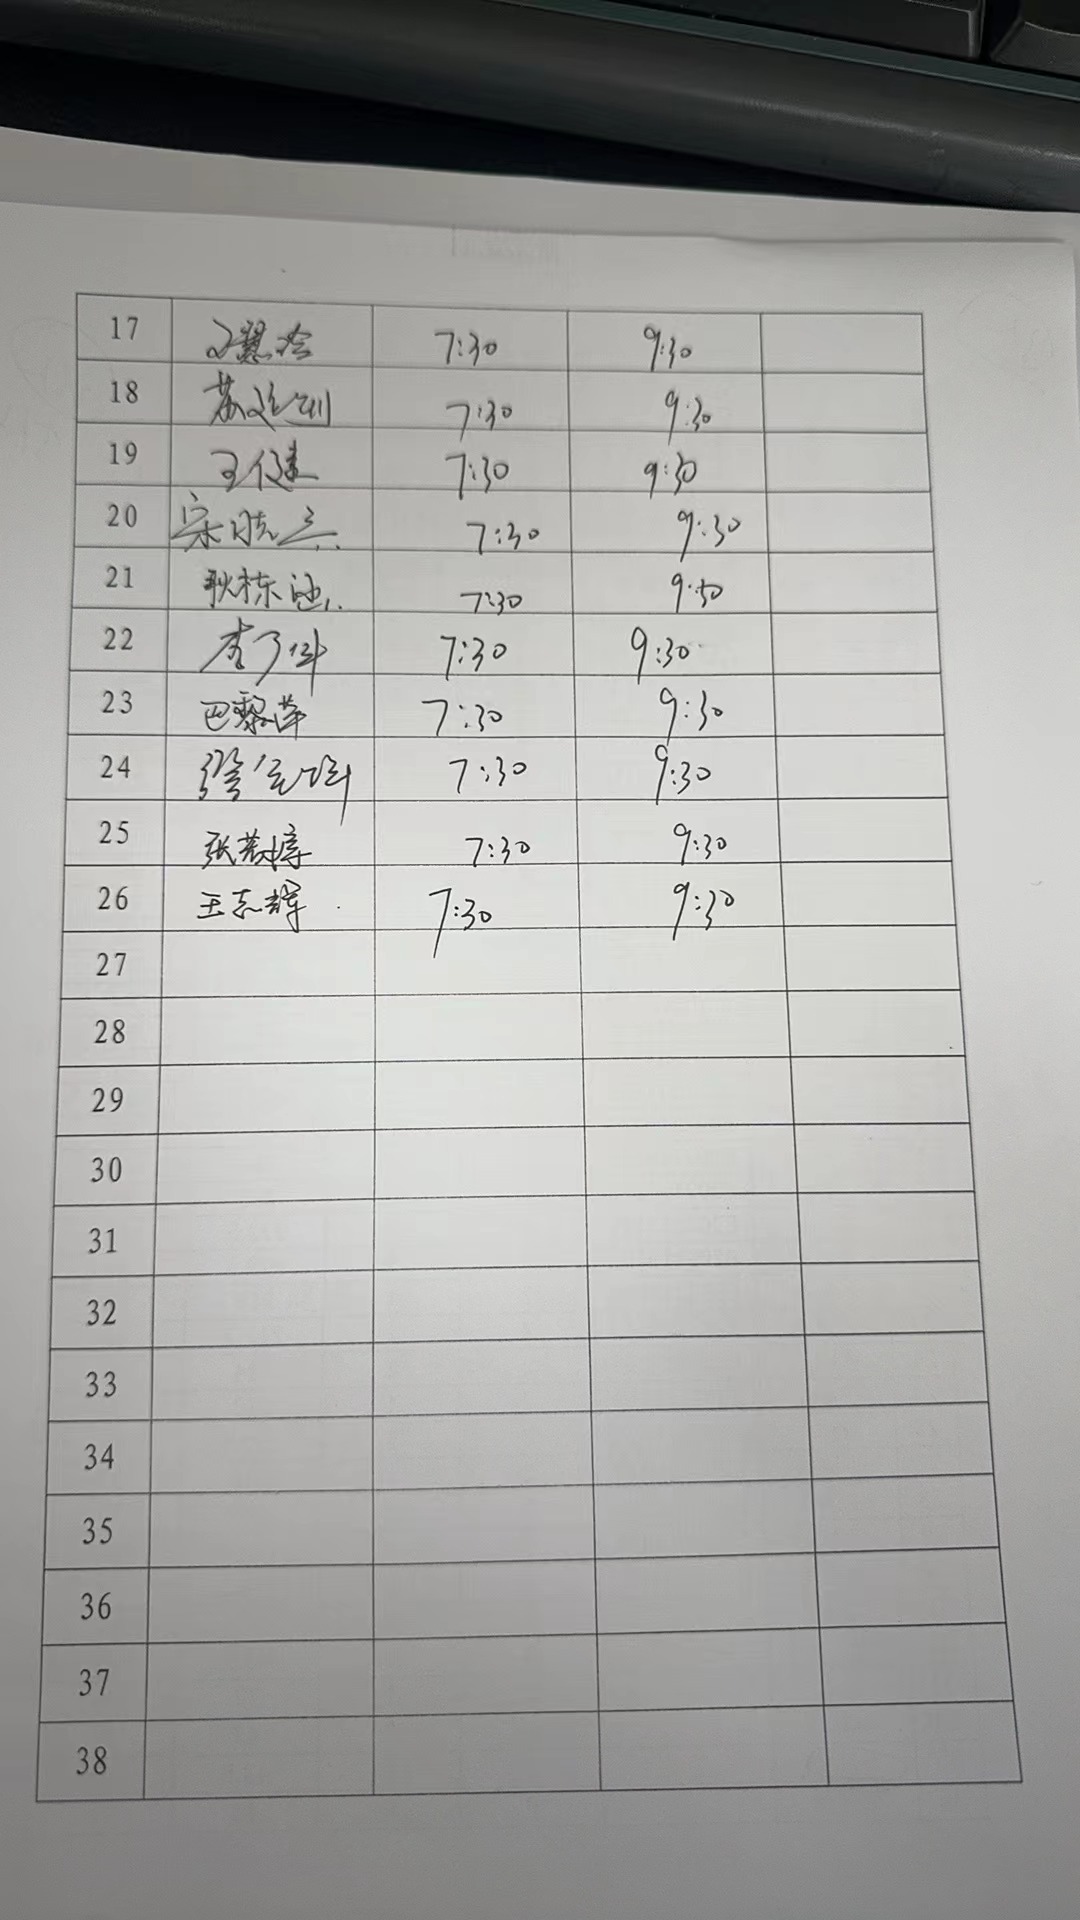 17 7:30 9:30
18 7:30 9:30
19 王健 7:30 9:30
20 宋晓 7:30 9:30
21 耿栋 7:30 9:30
22 李 7:30 9:30
23 巴黎萍 7:30 9:30
24 7:30 9:30
25 张 7:30 9:30
26 王志辉 7:30 9:30
27
28
29
30
31
32
33
34
35
36
37
38